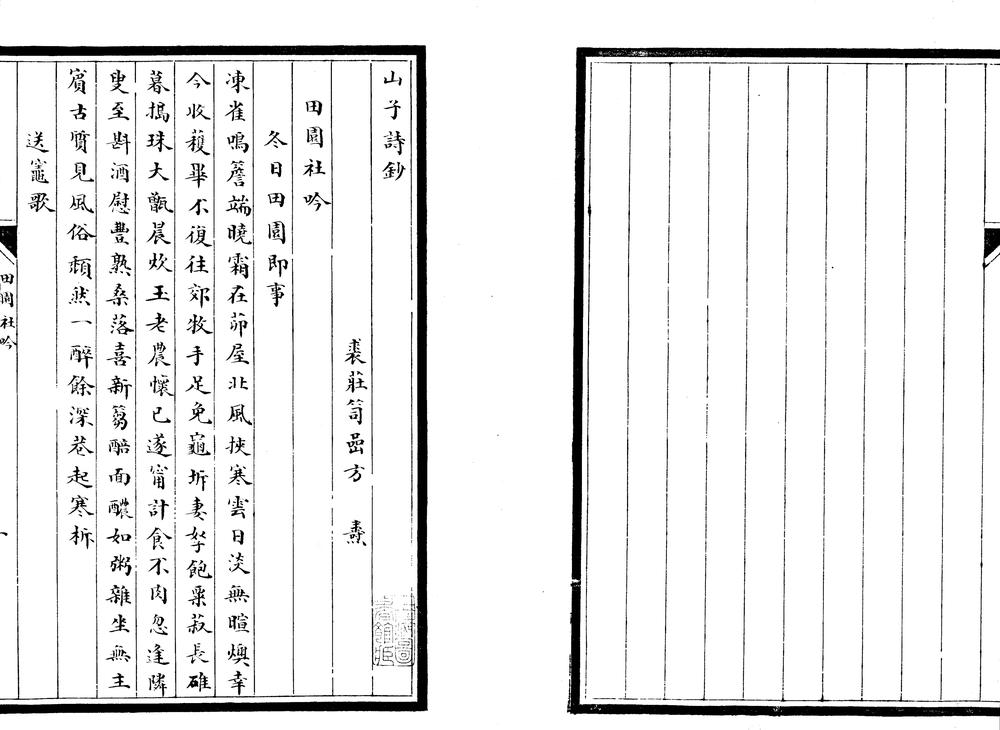 山子詩鈔
裘莊筍嵒方 燾
田園社吟
冬日田園即事
凍雀鳴簷端曉霜在茆屋北風挾寒雲日淡無暄燠幸
今收穫畢不復往郊牧手足免龜坼妻孥飽粟菽長碓
暮搗珠大甑晨炊玉老農懷已遂甯計食不肉忽逢隣
叟至斟酒慰豐熟桑落喜新篘醅面醲如粥雜坐無主
賓古質見風俗頹然一醉餘深巷起寒柝
送竈歌
田園社吟
一